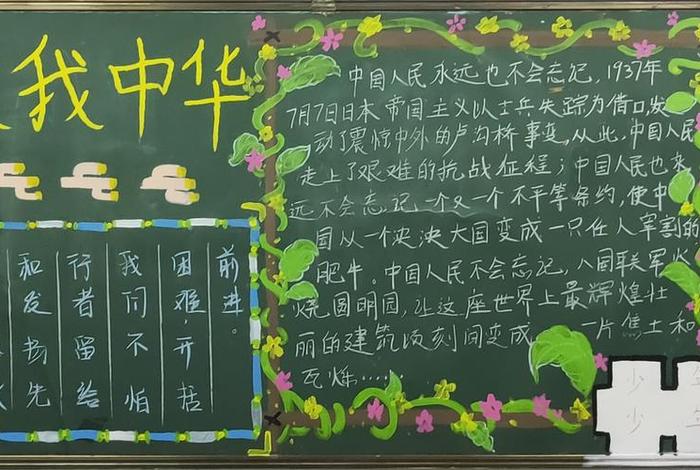 我中华
和发扬先
行者留给
我们不怕
困难,开拓
前进。
中国人民永远也不会忘记,1937年
7月7日日本帝国主义以士兵失踪为借口,发
动了震惊中外的卢沟桥事变,从此,中国人民
走上了艰难的抗战征程;中国人民也永
远不会忘记,一个又一个不平等条约,使中
国从一个泱泱大国变成一只任人宰割的
肥牛。中国人民不会忘记,八国联军火
烧圆明园,让这座世界上最辉煌壮
丽的建筑顷刻间变成 一片焦土和
瓦烁……
少
少